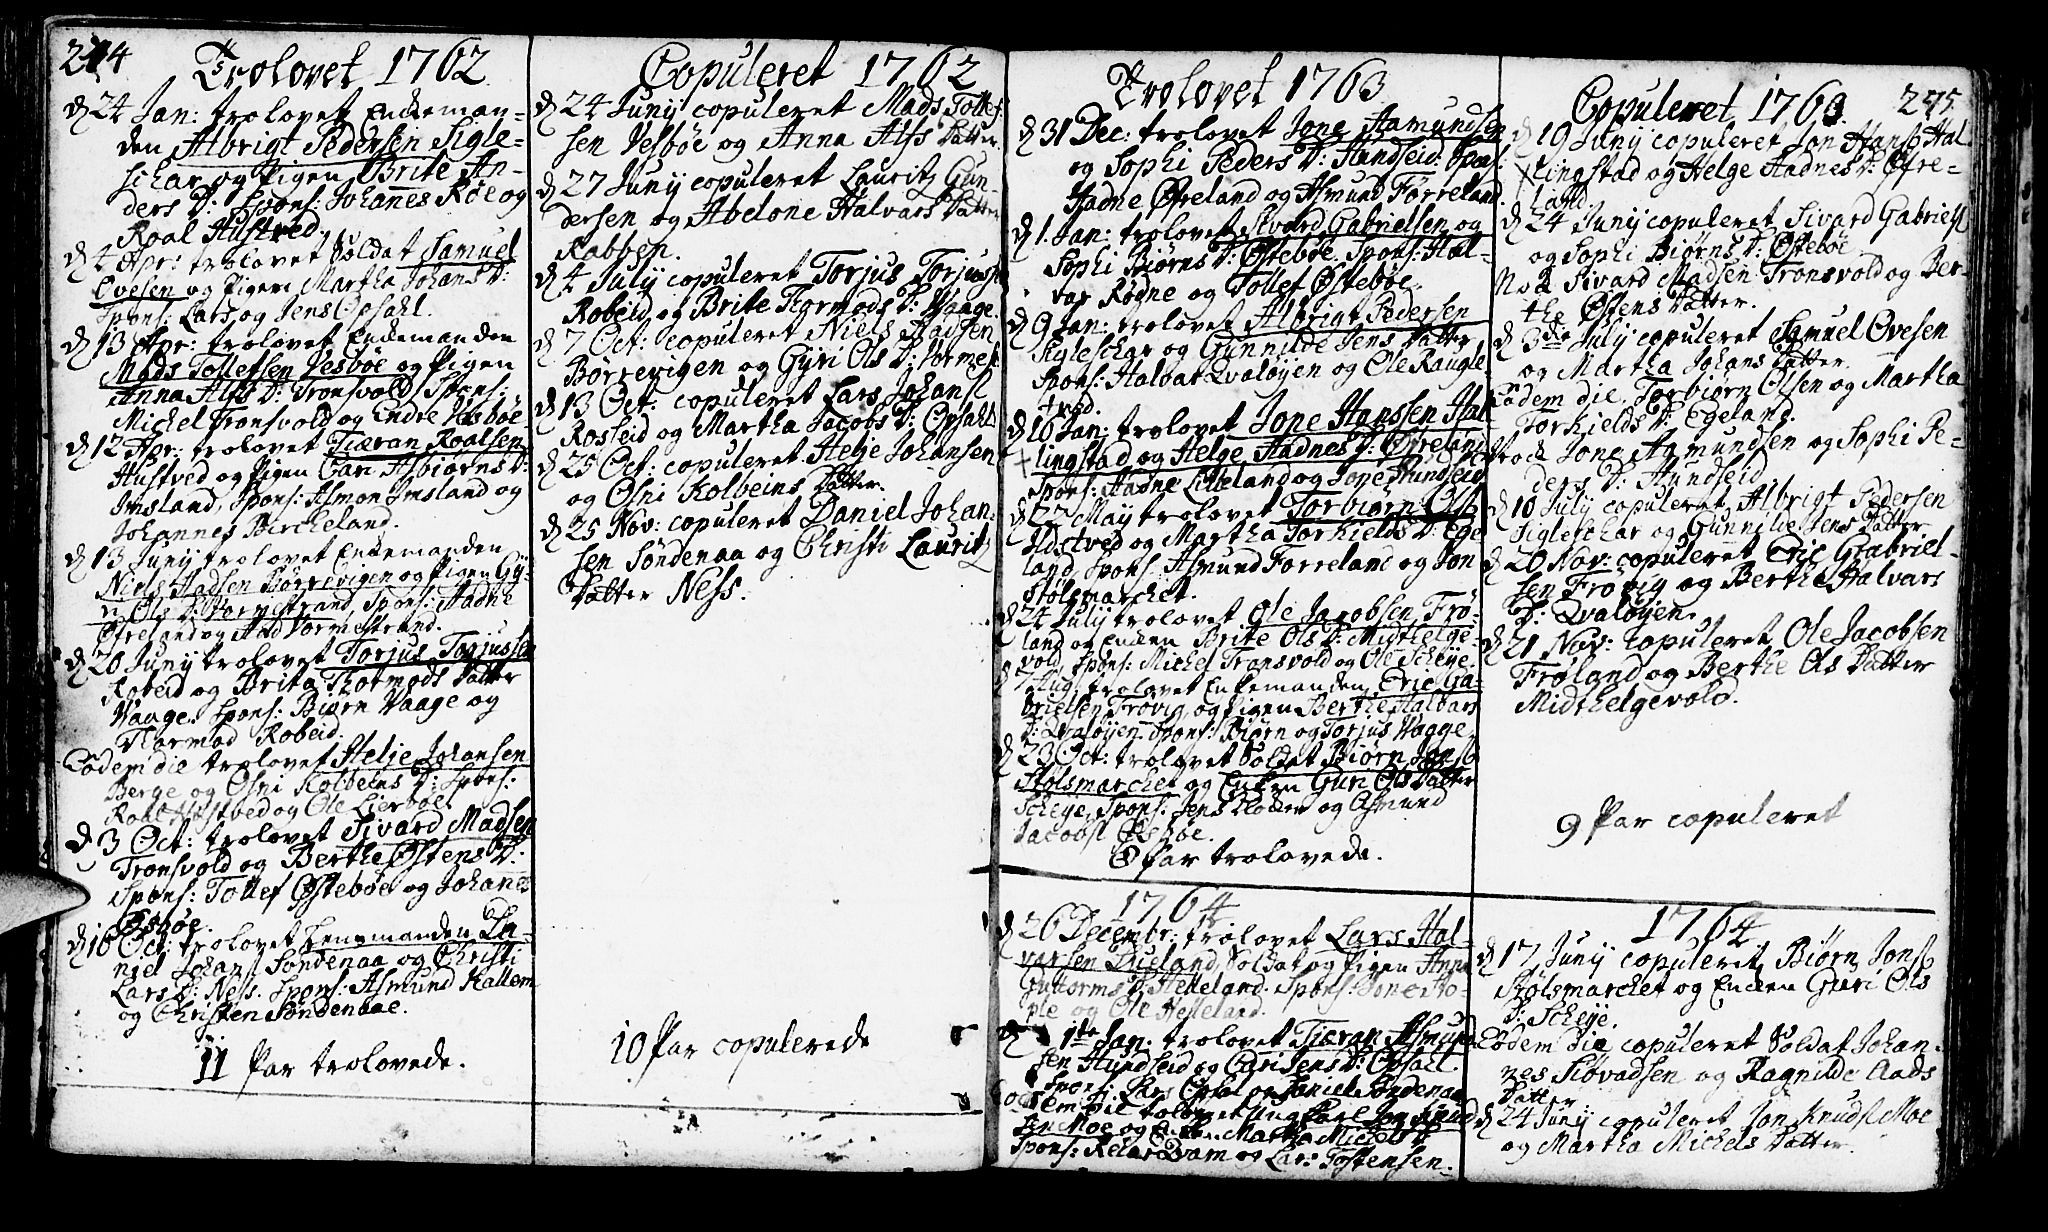 244
Trolovet 1762
d 24 Jan: trolovet Enkeman-
den Albrigt Pedersen Sigle-
schar og Pigen Brite An-
ders D: Spons: Johanes Røe og
Roal Hustved.
d 4 Apr: trolovet Soldat Samuel
Ovesen og Pigen Martha Johans D:
Spons: Lars og Jens Opsahl.
d 13 Apr: trolovet Enkemanden
Mads Tollefsen Vesbøe og Pigen
Anna Alfs D: Tronsvold, Spons:
Michel Tronsvold og Endre Vesbøe
d 12 Apr: trolovet Tieran Roalsen
Hustved og Pigen Gari Asbiørns D:
Imsland, Spons: Asmon Imsland og
Johannes Bircheland.
d 13 Juny trolovet Enkemanden
Niels Hadsen Børrevigen og Pigen Gy-
ri Ols D: Vormestrand, Spons: Hadne
Øfreland og Aad Vormestrand.
d 20 Juny trolovet Torjus Torjussen
Robeid og Brita Thormods Datter
Vaage. Spons: Biørn Vaage og
Tharmod Robeid.
Eodem die trolovet Helje Johansen
Berge og Osni Kolbeins D: Spons:
Roal Hustved og Ole Lierbøe.
d 3 Oct: trolovet Sivard Madsen
Tronsvold og Berthe Østens D:
Spons: Tollef Østebøe og Johanes
Østbøe.
d 16 Oct: trolovet Lensmanden Da-
niel Johans: Søndenaa og Christi
Lars D: Ness. Spons: Asmund Kallem
og Christen Søndenaae.
11 Par trolovede.
Copuleret 1762
d 24 Juny copuleret Mads Tollef-
sen Vesbøe og Anna Alfs Datter.
d 27 Juny copuleret Lauritz Gun-
dersen og Abelone Halvars Datter
Rabben.
d 4 July copuleret Torjus Torjuss:
Robeid og Brite Tormods D: Waage.
d 7 Oct: copuleret Niels Hadsen
Børrevigen og Gyri Ols D: Vormest
d 13 Oct: copuleret Lars Johans:
Rosseid og Martha Jacobs D: Opsahls
d 25 Oct: copuleret Helje Johansen
og Osni Kolbeins Datter.
d 25 Nov: copuleret Daniel Johan-
sen Søndenaa og Christi Lauritz
Datter Ness.
10 Par copulerede
Trolovet 1763
d 31 Dec: trolovet Jone Aamundsen
og Sophi Peders D: Hundseid. Spons:
Hadne Øfreland og Asmund Førreland
d 1. Jan: trolovet Sivard Gabrielsen og
Sophi Biørns D: Østebøe. Spons: Hal-
var Rødne og Tollef Østebøe.
d 9 Jan: trolovet Albrigt Pedersen
Sigleschar og Gunnilde Jens Datter
Spons: Halvar Qvaløyen og Ole Raugle-
tved.
d 16 Jan: trolovet Jone Hanssen Hal-
lingstad og Helge Hadnes D: Øfreland
Spons: Hadne Lilleland og Jone Hundseid
d 27 May trolovet Torbiørn Ols:
Ilstved og Martha Torkields D: Ege
land, Spons: Asmund Førreland og Jon
Stølsmarchet.
d 24 July trolovet Ole Jacobsen Frø-
land og Enken Brite Ols D: Midthelge-
vold, Spons: Michel Tronsvold og Ole Scheye.
d 7 Aug: trolovet Enkemanden Eric Ga-
brielsen Frøvig, og Pigen Berthe Halvars
D: Qvaløyen. Spons: Biørn og Torjus Waage.
d 23 Oct: trolovet Soldat Biørn Jons:
Stølsmarchet og Enken Guri Ols Datter
Scheye, Spons: Jens Kloden og Asmund
Jacobs: Østbøe.
8 Par trolovede.
1764
d 26 Decembr: trolovet Lars Hal-
varsen Frieland, Soldat og Pigen Anna
Guttorms D: Helleland. Spons: Jone Ho-
ple og Ole Helleland.
d 1ste Jan: trolovet Tieran Asmund-
sen Hundseid og Cari Jens D: Opsal.
Spons: Lars Opsal og Daniel Søndenaa
Eodem Die trolovet Ung Karl Jon Knud-
sen Moe og Enken Martha Michels D:
Spons: Reiar Dam og Lars Tostensen.
245
Copuleret 1763
d 19 Juny copuleret Jon Hans: Hal
lingstad og Helge Hadnes D: Øfre-
land.
d 24 Juny copuleret Sivard Gabriels:
og Sophi Biørns D: Østebøe
Nok Sivard Madsen Tronsvold og Ber-
the Østens Datter.
d 3die July copuleret Samuel Ovesen
og Martha Johans Datter.
Eodem die, Torbiørn Olsen og Martha
Torkields D: Egeland.
Nock Jone Aamundsen og Sophi Pe-
ders D: Hundseid.
d 10 July copuleret Albrigt Pedersen
Sigleschar og Gunnild Jens Datter
d 20 Nov: copuleret Eric Gabriel-
sen Frøvig og Berthe Halvars
D: Qvaløyen.
d 21 Nov: copuleret Ole Jacobsen
Frøland og Berthe Ols Datter
Midthelgevold.
9 Par copuleret
1764
d 17 Juny copuleret Biørn Jons:
Stølsmarchet og Enken Guri Ols
D: Scheye.
Eodem Die copuleret Soldat Johan-
nes Siovadsen og Ragnilde Aads
Datter
d 24 Juny copuleret Jon Knuds: Moe
og Martha Michels Datter.